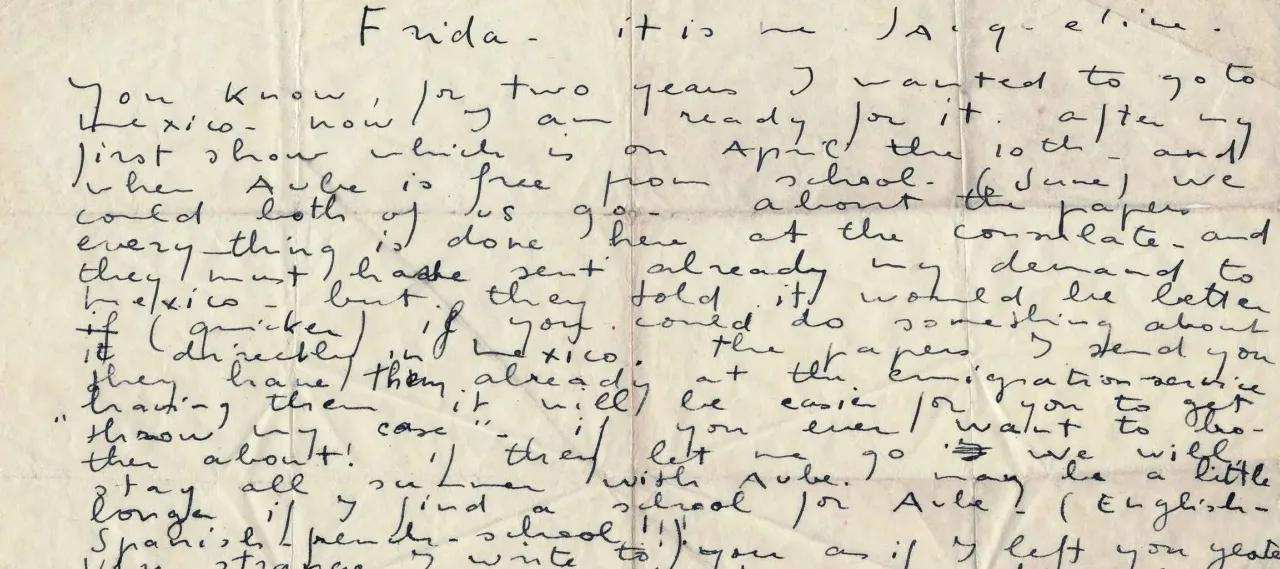 Frida - it is me Jacqueline.
You know, for two years I wanted to go to
mexico - now I am ready for it. after my
first show which is on April the 10th - and
when Aube is free from school - (June) we
could both of us go - about the papers
every-thing is done here at the consulate - and
they must have sent already my demand to
mexico - but they told it would be better
if (quicker) if you could do something about
it directly in mexico. the papers I send you
they have them already at the emigration-service
having them it will be easier for you to get
"throw my case" - if you ever want to bo-
ther about! if they let me go we will
stay all summer with Aube. may be a little
longer if I find a school for Aube - (English-
Spanish-french-school!!!)
very strange I write to you as if I left you